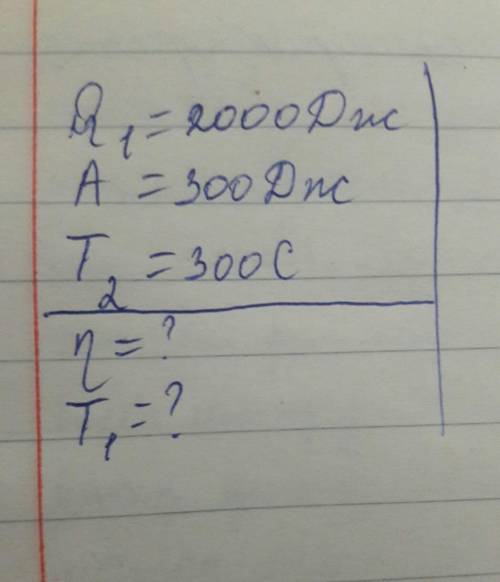 Q₁ = 2000 Дж
A = 300 Дж
T₂ = 300 С
η = ?
T₁ = ?